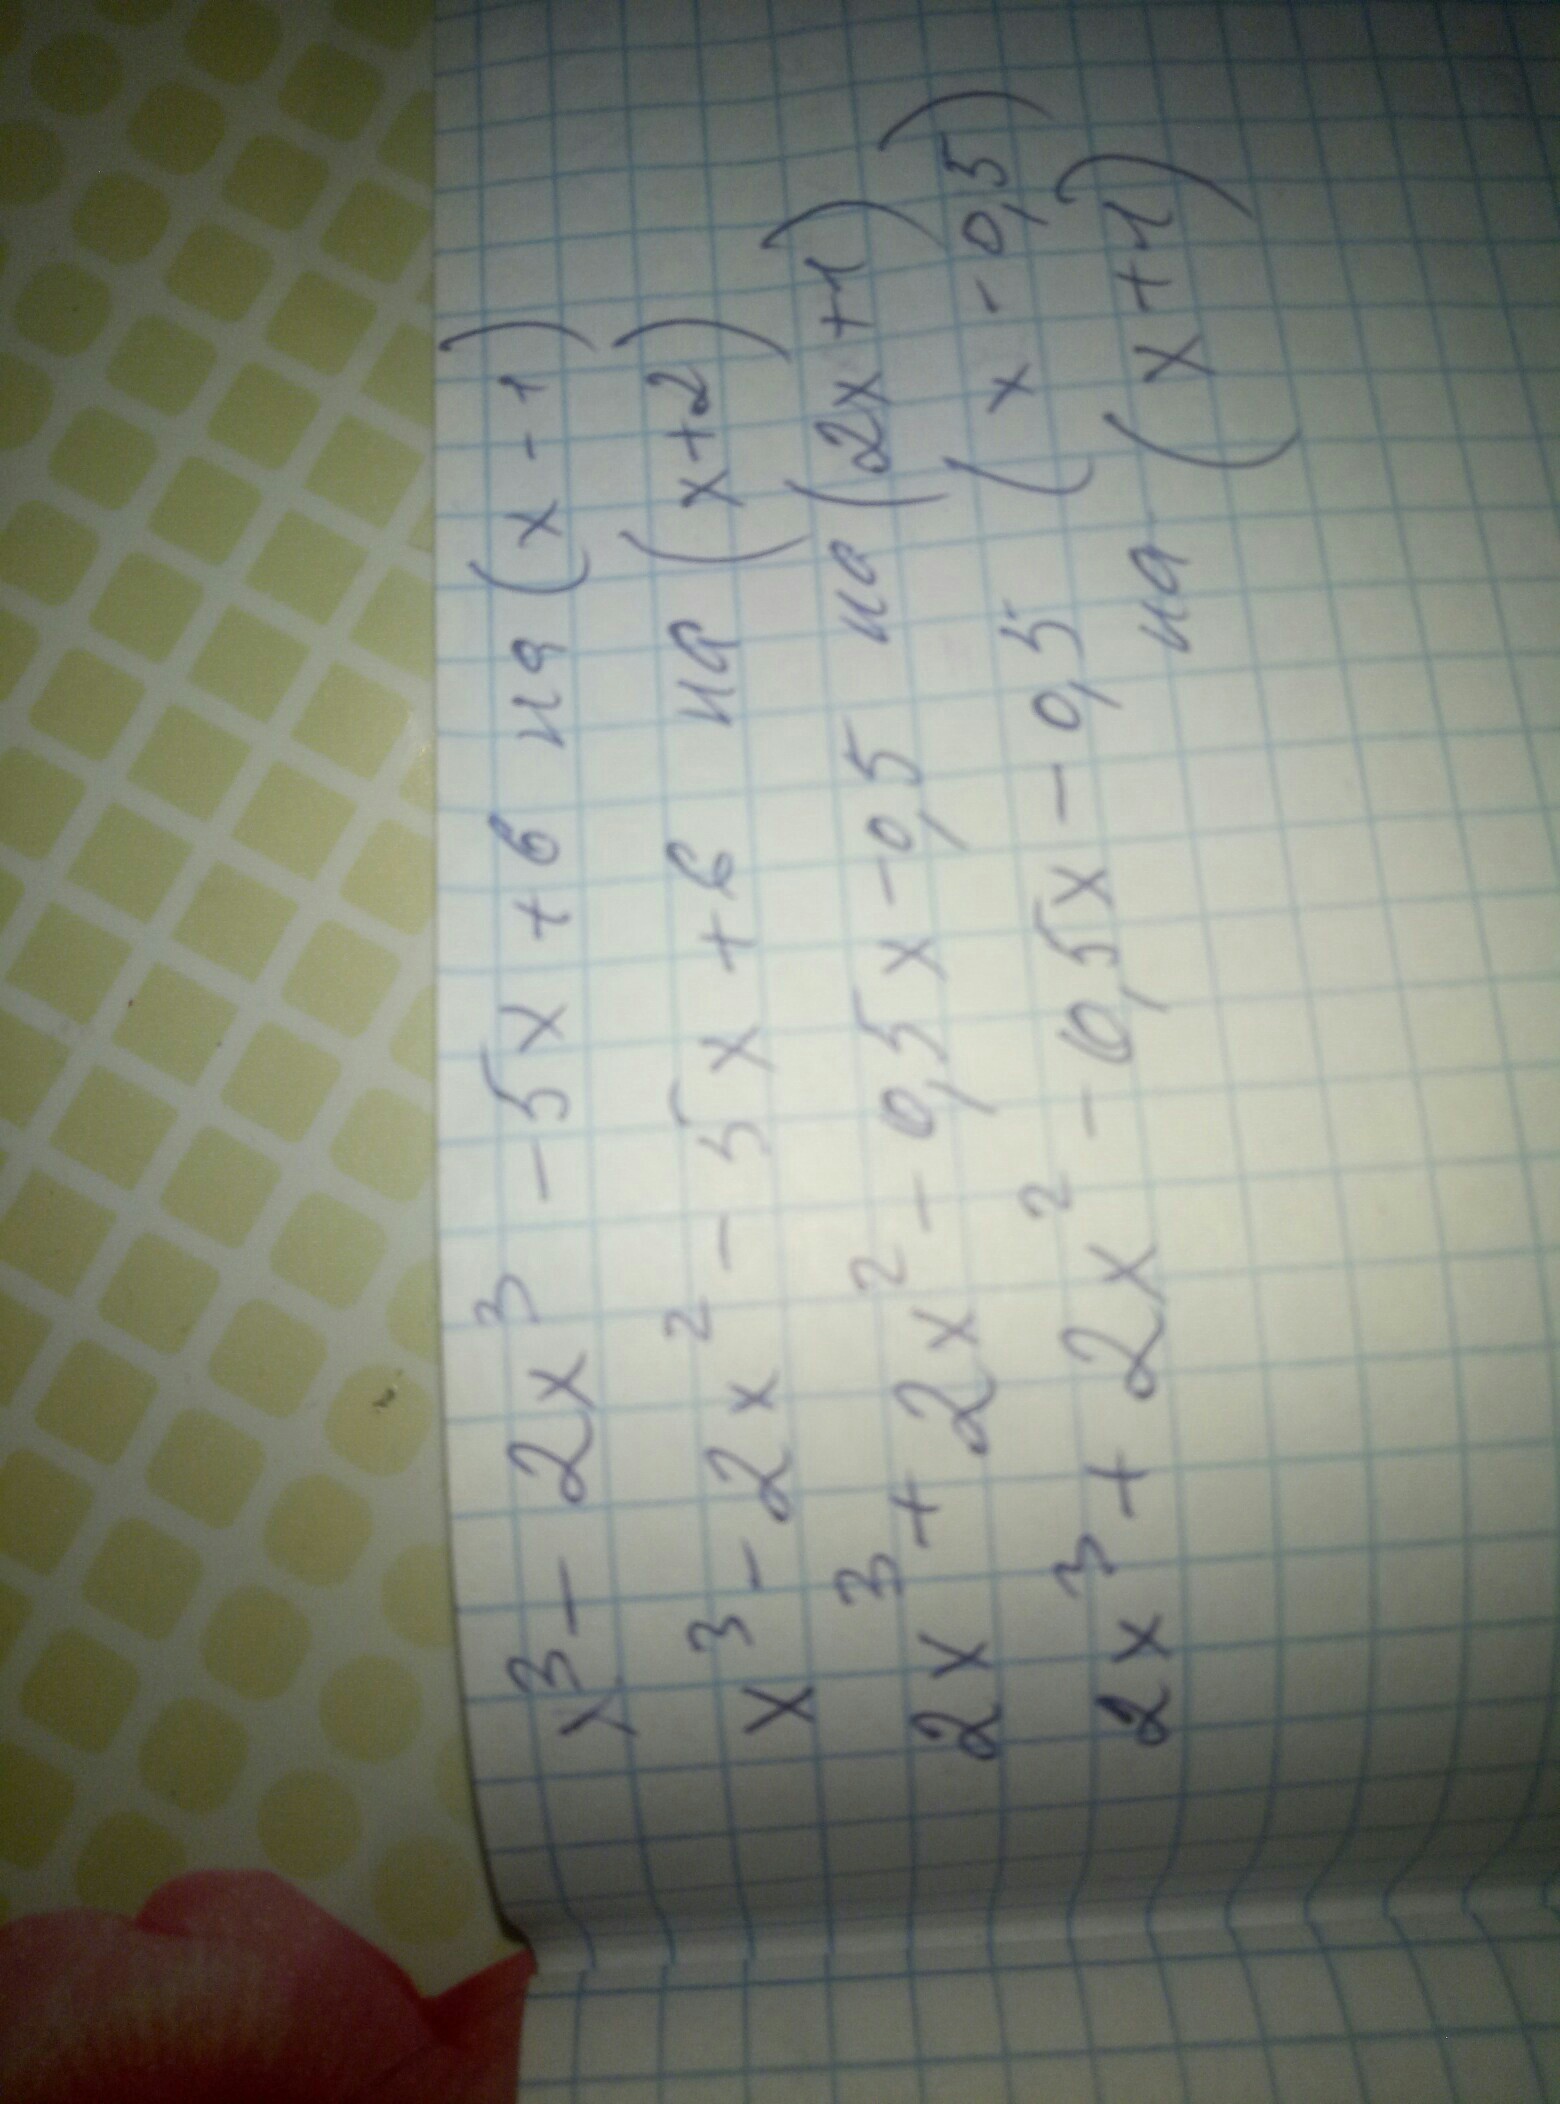 x³ - 2x³ - 5x + 6 на (x - 1)
x³ - 2x² - 5x + 6 на (x + 2)
2x³ + 2x² - 0,5x - 0,5 на (2x + 1)
(x - 0,5)
2x³ + 2x² - 0,5x - 0,5 на (x + 1)